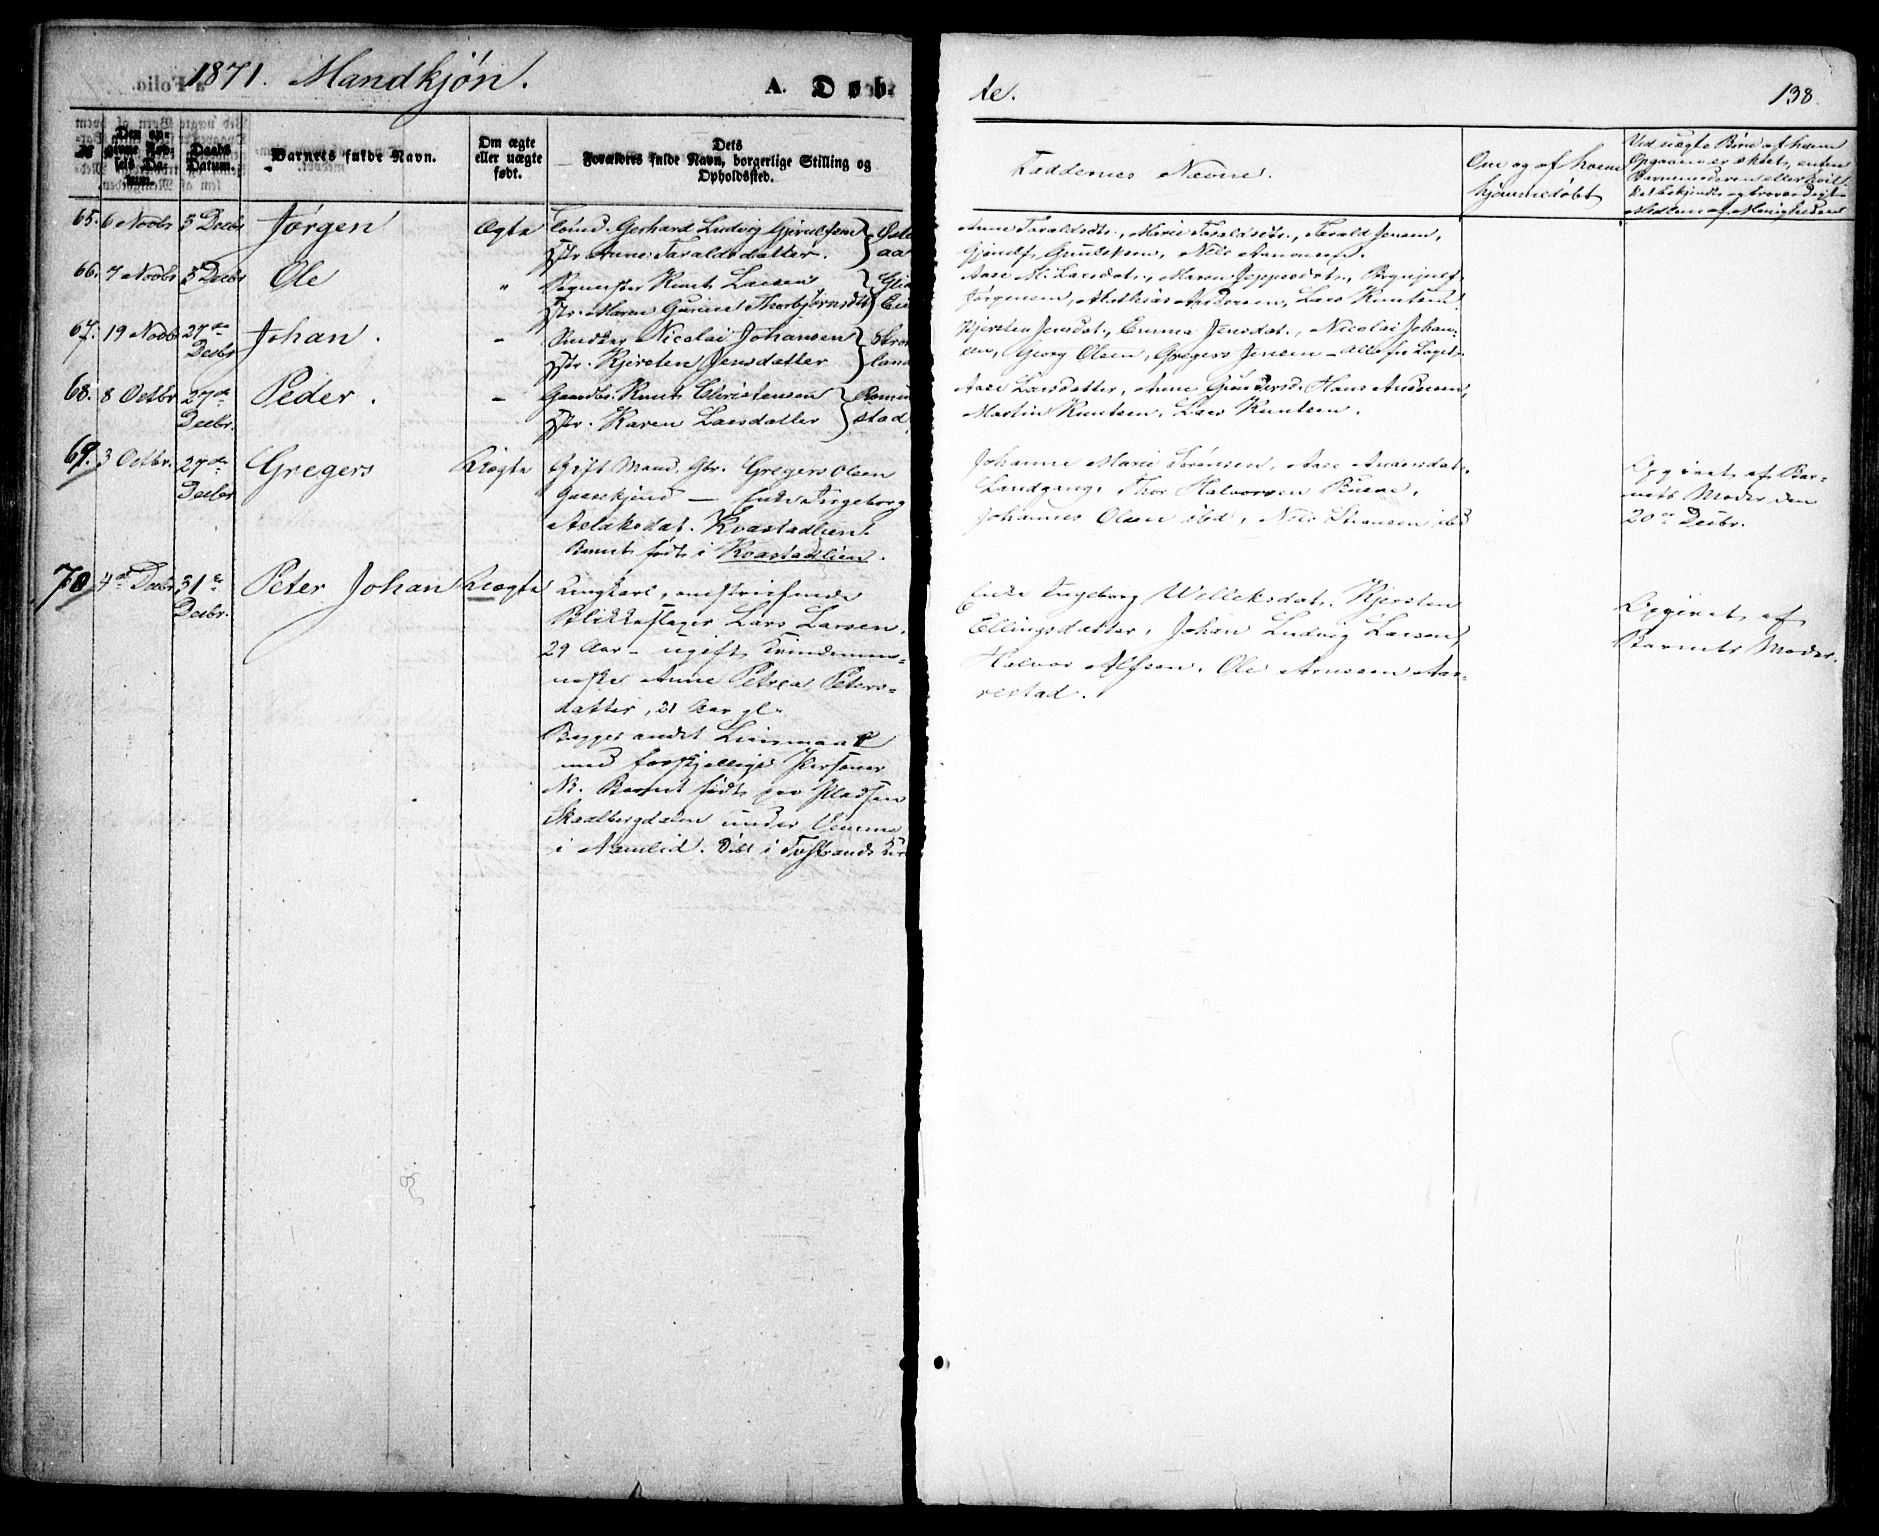 1871. Mandkjøn.
A. Døb-
te.
138.
№
Den opgivne Fødsels Datum.
Daabs Datum.
Barnets fulde Navn.
Om ægte eller uægte født.
Dets Forældres fulde Navn, borgerlige Stilling og Opholdssted.
Faddernes Navne.
Om og af hvem hjemmedøbt
Ved uægte Børn af hvem
Opgaven er sket, enten
Barnemoderen eller hvilket
bekjendte og troværdigt
Medlem af Menigheden
65. 6 Novbr 3 Decbr Jørgen Ægte Tømd. Gerhard Ludvig Gjerulfsen
Hstr. Anne Taraldsdatter.
aa
Anne Taraldsdtr., Marie Taraldsdtr., Tarald Jensen,
Gjerulf Gundersen, Nils
66. 7 Novbr 3 Decbr Ole " Knut Larsen
Hstr. Maren Gurine Thorbjørnsdtr
Aase M. Larsdat., Maren Jeppesdtr.,
Jørgensen, Mathias Andersen, Lars Knutsen.
67. 19 Novbr 27de Decbr Johan. - Snedker Nicolai Johansen
Hstr. Kjersten Jensdatter
Kjersten Jensdat., Emma Jensdat., Nicolai Johan-
sen, Georg Olsen, Gregers Jensen - Alle fr
68. 8 Octbr 27de Decbr. Peder. - Gaardbr. Knut Christensen
Hstr. Karen Larsdatter
stad
Aase Larsdatter, Anne Gundersd. Hans Andersen,
Martin Knutsen, Lars Knutsen.
69. 3 Octbr. 27de Decbr Gregers Uægte Gift Mand, Gbr. Gregers Olsen
- Enke Ingeborg
Aslaksdat. Kvastadlien.
Barnet født i Kvastadlien.
Johanne Marie Sørensen, Aase Andersdat.
Landgang, Thor Halvorsen
Johannes Olsen ibd, Nils
Opgivet af Bar-
nets Moder den
20de Decbr.
70 4de Decbr 31te Decbr. Peter Johan Uægte Ungkarl, omstreifende
Blikkeslager Lars Larsen,
29 Aar - ugift Kvindemen-
neske Anne Petrea Peters-
datter, 21 Aar gl.
Begges andet Leiermaal
med forskjellige Personer
NB. Barnet født paa Pladsen
Skaalbergdalen under
i Aamlid. Døbt i Tvestrands
Enke Ingeborg Kjersten
Ellingsdatter, Johan Ludvig Larsen,
Halvor Alfsen, Ole Arnesen Aar-
restad.
Opgivet af
Barnets Moder.